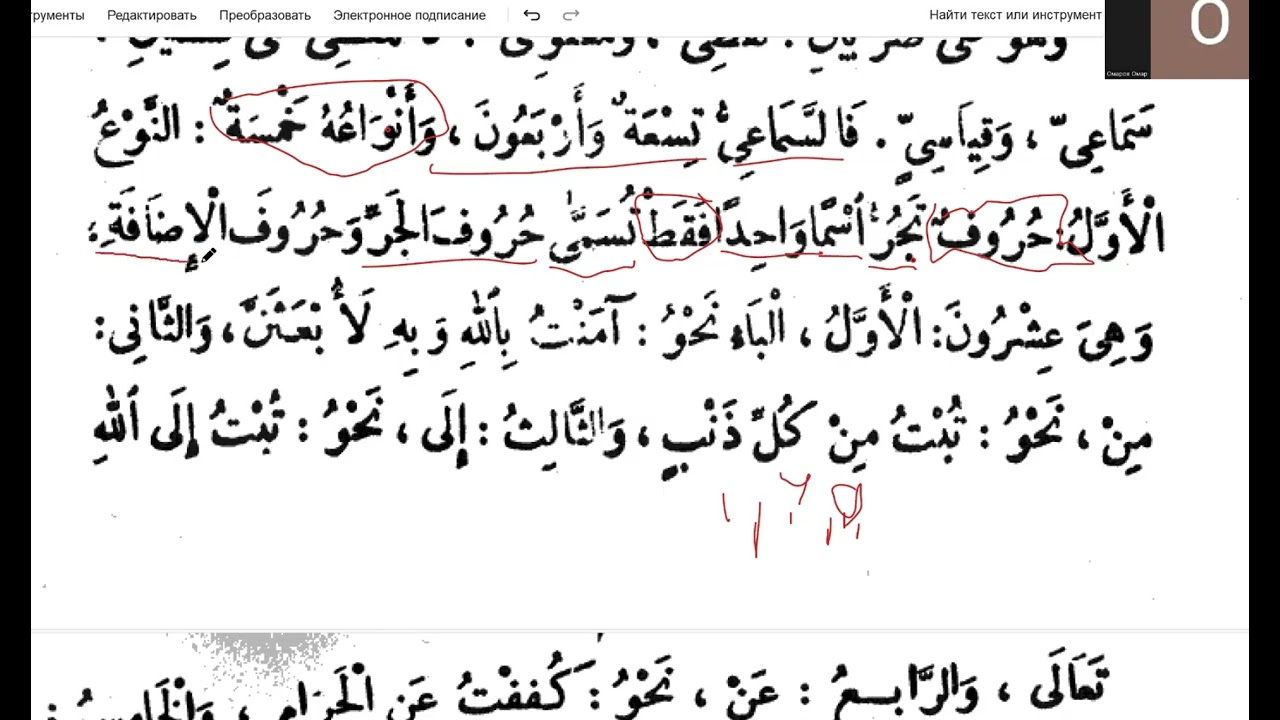 рументы Редактировать Преобразовать Электронное подписание Найти текст или инструмент
O
Омаров Омар
سَمَاعِىٍّ ، وَقِيَاسِىٍّ . فَالسَّمَاعِىُّ تِسْعَةٌ وَأَرْبَعُونَ ، وَأَنْوَاعُهُ خَمْسَةٌ : النَّوْعُ
الْأَوَّلُ : حُرُوفٌ تَجُرُّ اسْمًا وَاحِدًا فَقَطْ تُسَمَّى حُرُوفَ الْجَرِّ وَحُرُوفَ الْإِضَافَةِ ؛
وَهِىَ عِشْرُونَ : الْأَوَّلُ ، الْبَاءِ نَحْوُ : آمَنْتُ بِاللهِ وَبِهِ لَأُبْعَثَنَّ ، وَالثَّانِى :
مِنْ ، نَحْوُ : تُبْتُ مِنْ كُلِّ ذَنْبٍ ، وَالثَّالِثُ : إِلَى ، نَحْوُ : تُبْتُ إِلَى اللهِ
تَعَالَى ، وَالرَّابِعُ : عَنْ ، نَحْوُ : كُفِفْتُ عَنِ الْحَرَامِ ، وَالْخَامِسُ :